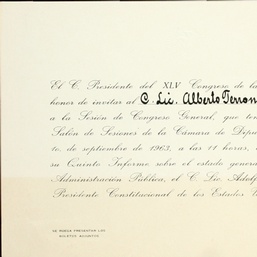 El C. Presidente del XLV Congreso de la
honor de invitar al C. Lic. Alberto Terron
a la Sesión de Congreso General, que ten
Salón de Sesiones de la Cámara de Dipu
to. de septiembre de 1963, a las 11 horas,
su Quinto Informe sobre el estado genera
Administración Pública, el C. Lic. Adolf
Presidente Constitucional de los Estados U
SE RUEGA PRESENTAR LOS
BOLETOS ADJUNTOS